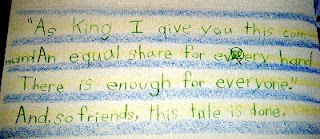 "As King I give you this com
mand An equal share for every hand
There is enough for everyone."
And, so friends, this tale is done.